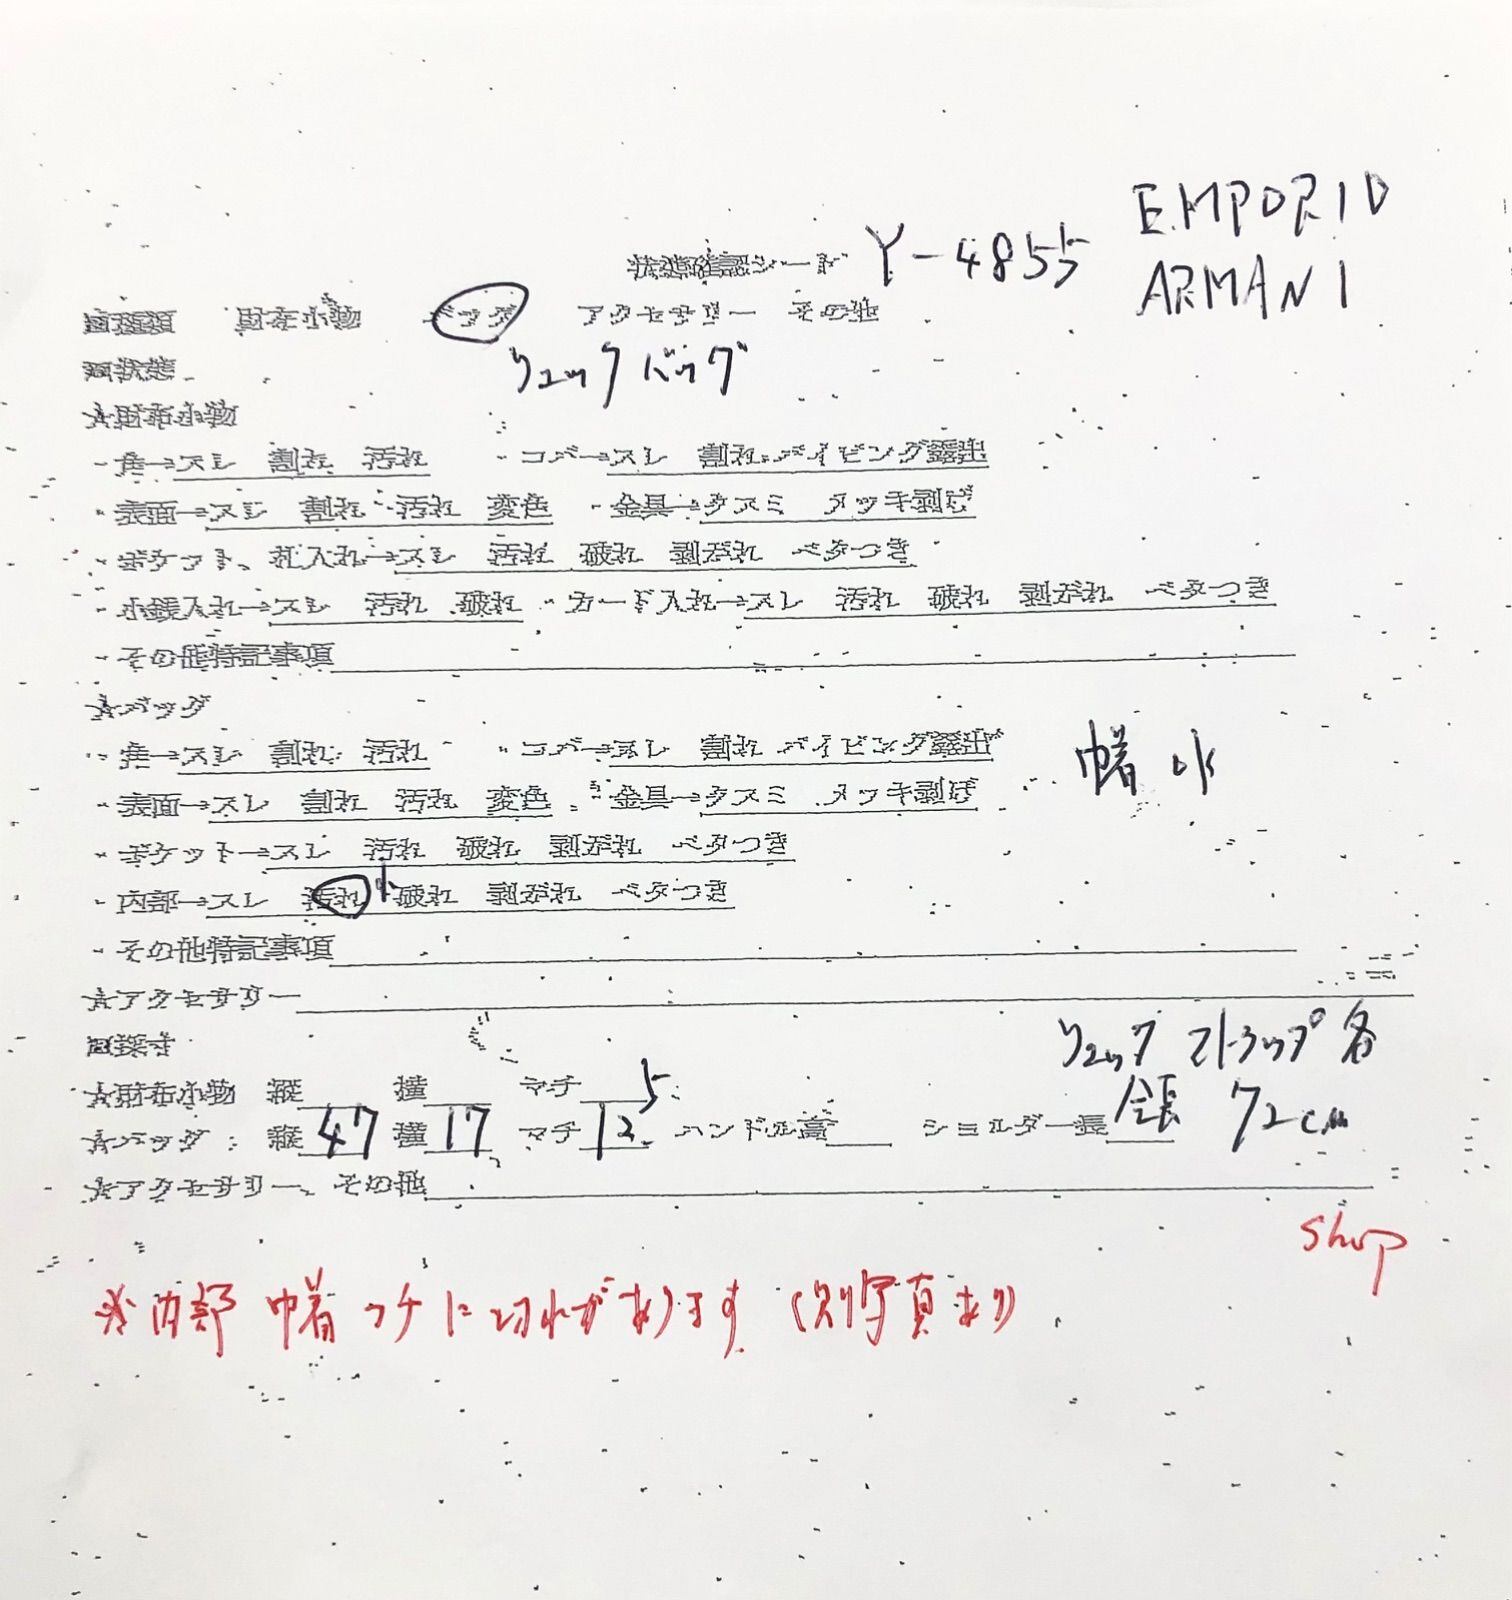 状態確認シート Y-4855 EMPORIO
ARMANI
財布小物 バッグ アクセサリー その他
リュックバッグ
状態
☆財布小物
・角→スレ 割れ 汚れ ・コバ→スレ 割れ パイピング露出
・表面→スレ 割れ 汚れ 変色 ・金具→クスミ メッキ剥げ
・ポケット、札入れ→スレ 汚れ 破れ 剥がれ ベタつき
・小銭入れ→スレ 汚れ 破れ ・カード入れ→スレ 汚れ 破れ 剥がれ ベタつき
・その他特記事項
☆バッグ
・角→スレ 割れ 汚れ ・コバ→スレ 割れ パイピング露出
巾着
・表面→スレ 割れ 汚れ 変色 ・金具→クスミ メッキ剥げ
・ポケット→スレ 汚れ 破れ 剥がれ ベタつき
・内部→スレ 汚れ 小 破れ 剥がれ ベタつき
・その他特記事項
☆アクセサリー
採寸
リュック ストラップ 各
☆財布小物 縦 横 マチ
☆バッグ 縦 47 横 17 マチ 12.5 ハンドル高 ショルダー長 全長 72cm
☆アクセサリー、その他
shop
※内部 巾着フチに切れがあります (別写真あり)